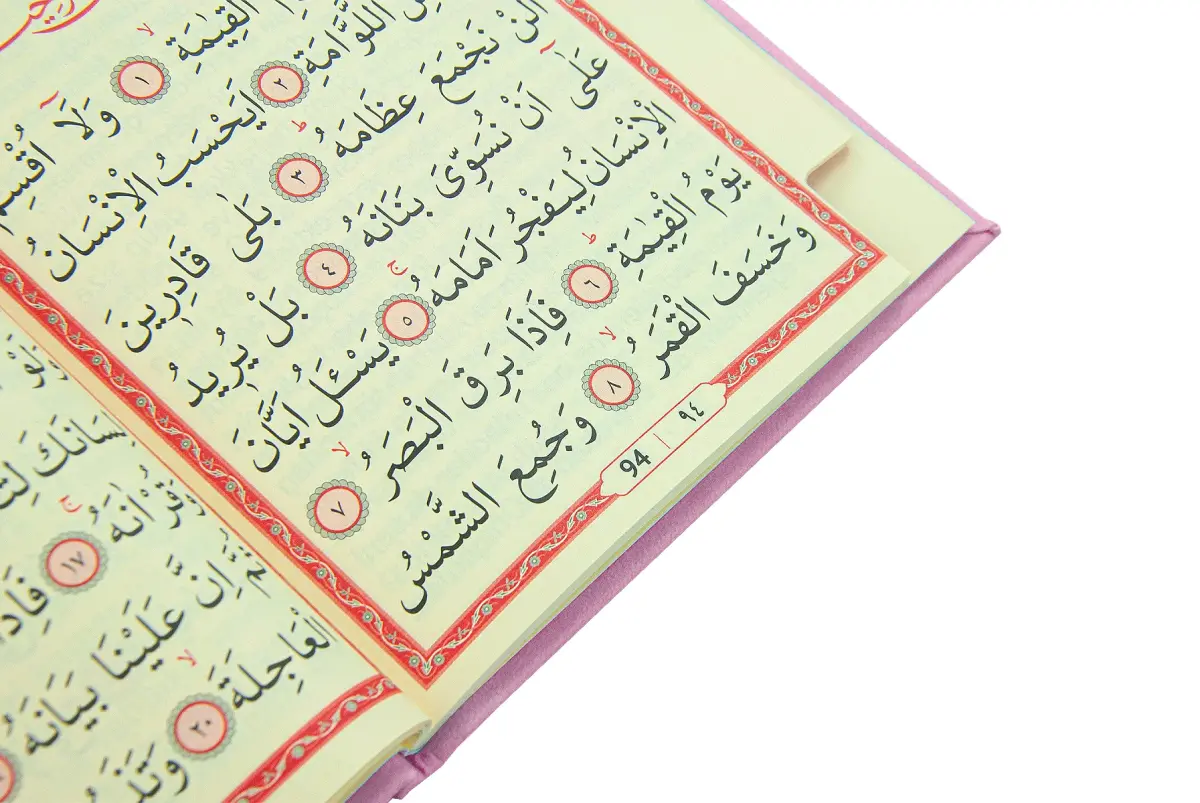 الْقِيٰمَةِ ۙ ١ وَلَآ اُقْسِمُ
اللَّوَّامَةِ ٢ اَيَحْسَبُ الْاِنْسَانُ
اَلَّنْ نَجْمَعَ عِظَامَهُ ۜ ٣ بَلٰى قَادِرٖينَ
عَلٰٓى اَنْ نُسَوِّىَ بَنَانَهُ ٤ بَلْ يُرٖيدُ
الْاِنْسَانُ لِيَفْجُرَ اَمَامَهُ ۚ ٥ يَسْـَٔلُ اَيَّانَ
يَوْمُ الْقِيٰمَةِ ۜ ٦ فَاِذَا بَرِقَ الْبَصَرُ ۙ ٧
وَخَسَفَ الْقَمَرُ ۙ ٨ وَجُمِعَ الشَّمْسُ
94 | ٩٤
وَقُرْاٰنَهُ ۚ ١٧
ثُمَّ اِنَّ عَلَيْنَا بَيَانَهُ
الْعَاجِلَةَ ۙ ٢٠